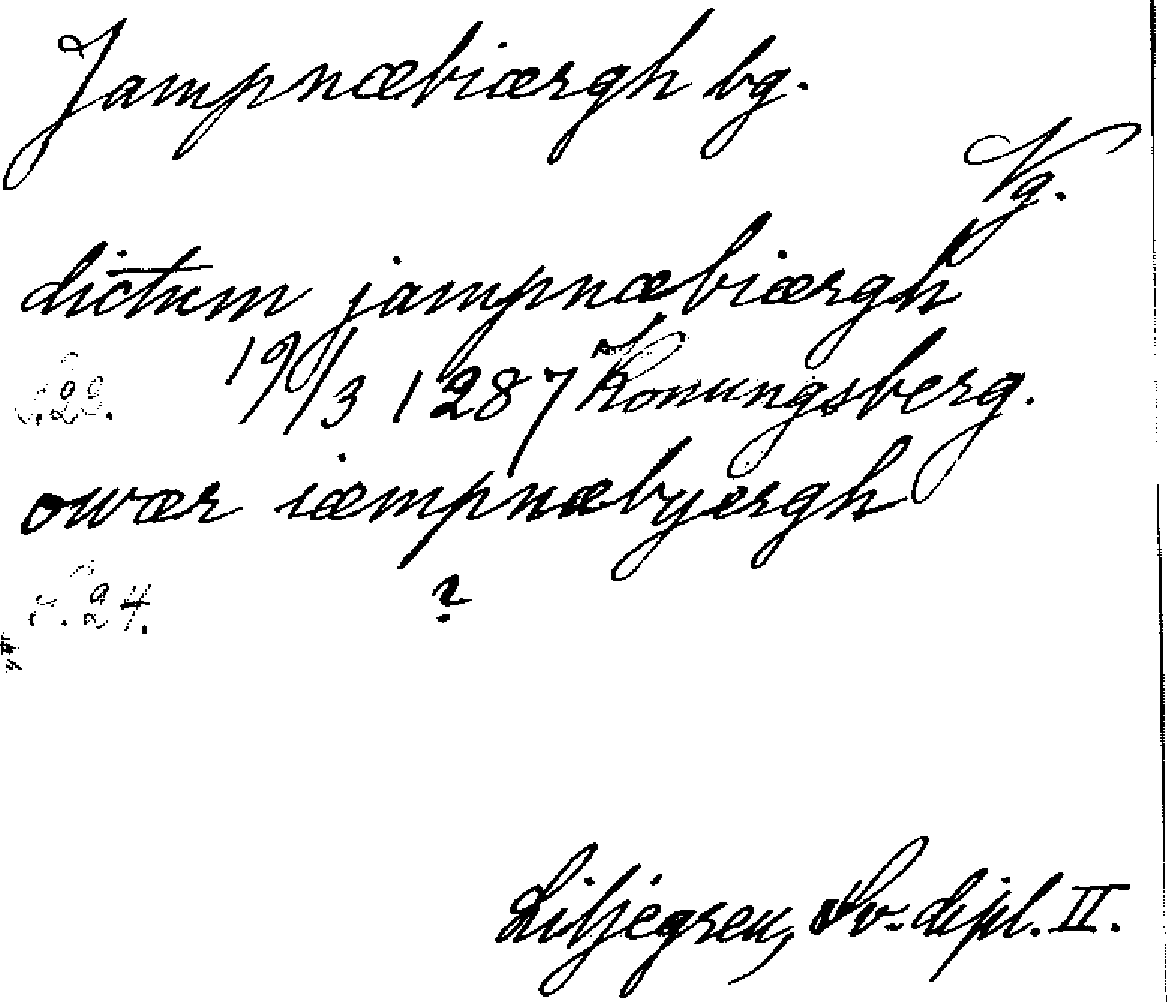 Jampnæbiærgh bg.
Vg.
dictum jampnæbiærgh
S. 23. 19/3 1287 Konungsberg.
owær iæmpnæbyergh
S. 24. ?
Liljegren, Sv. dipl. II.